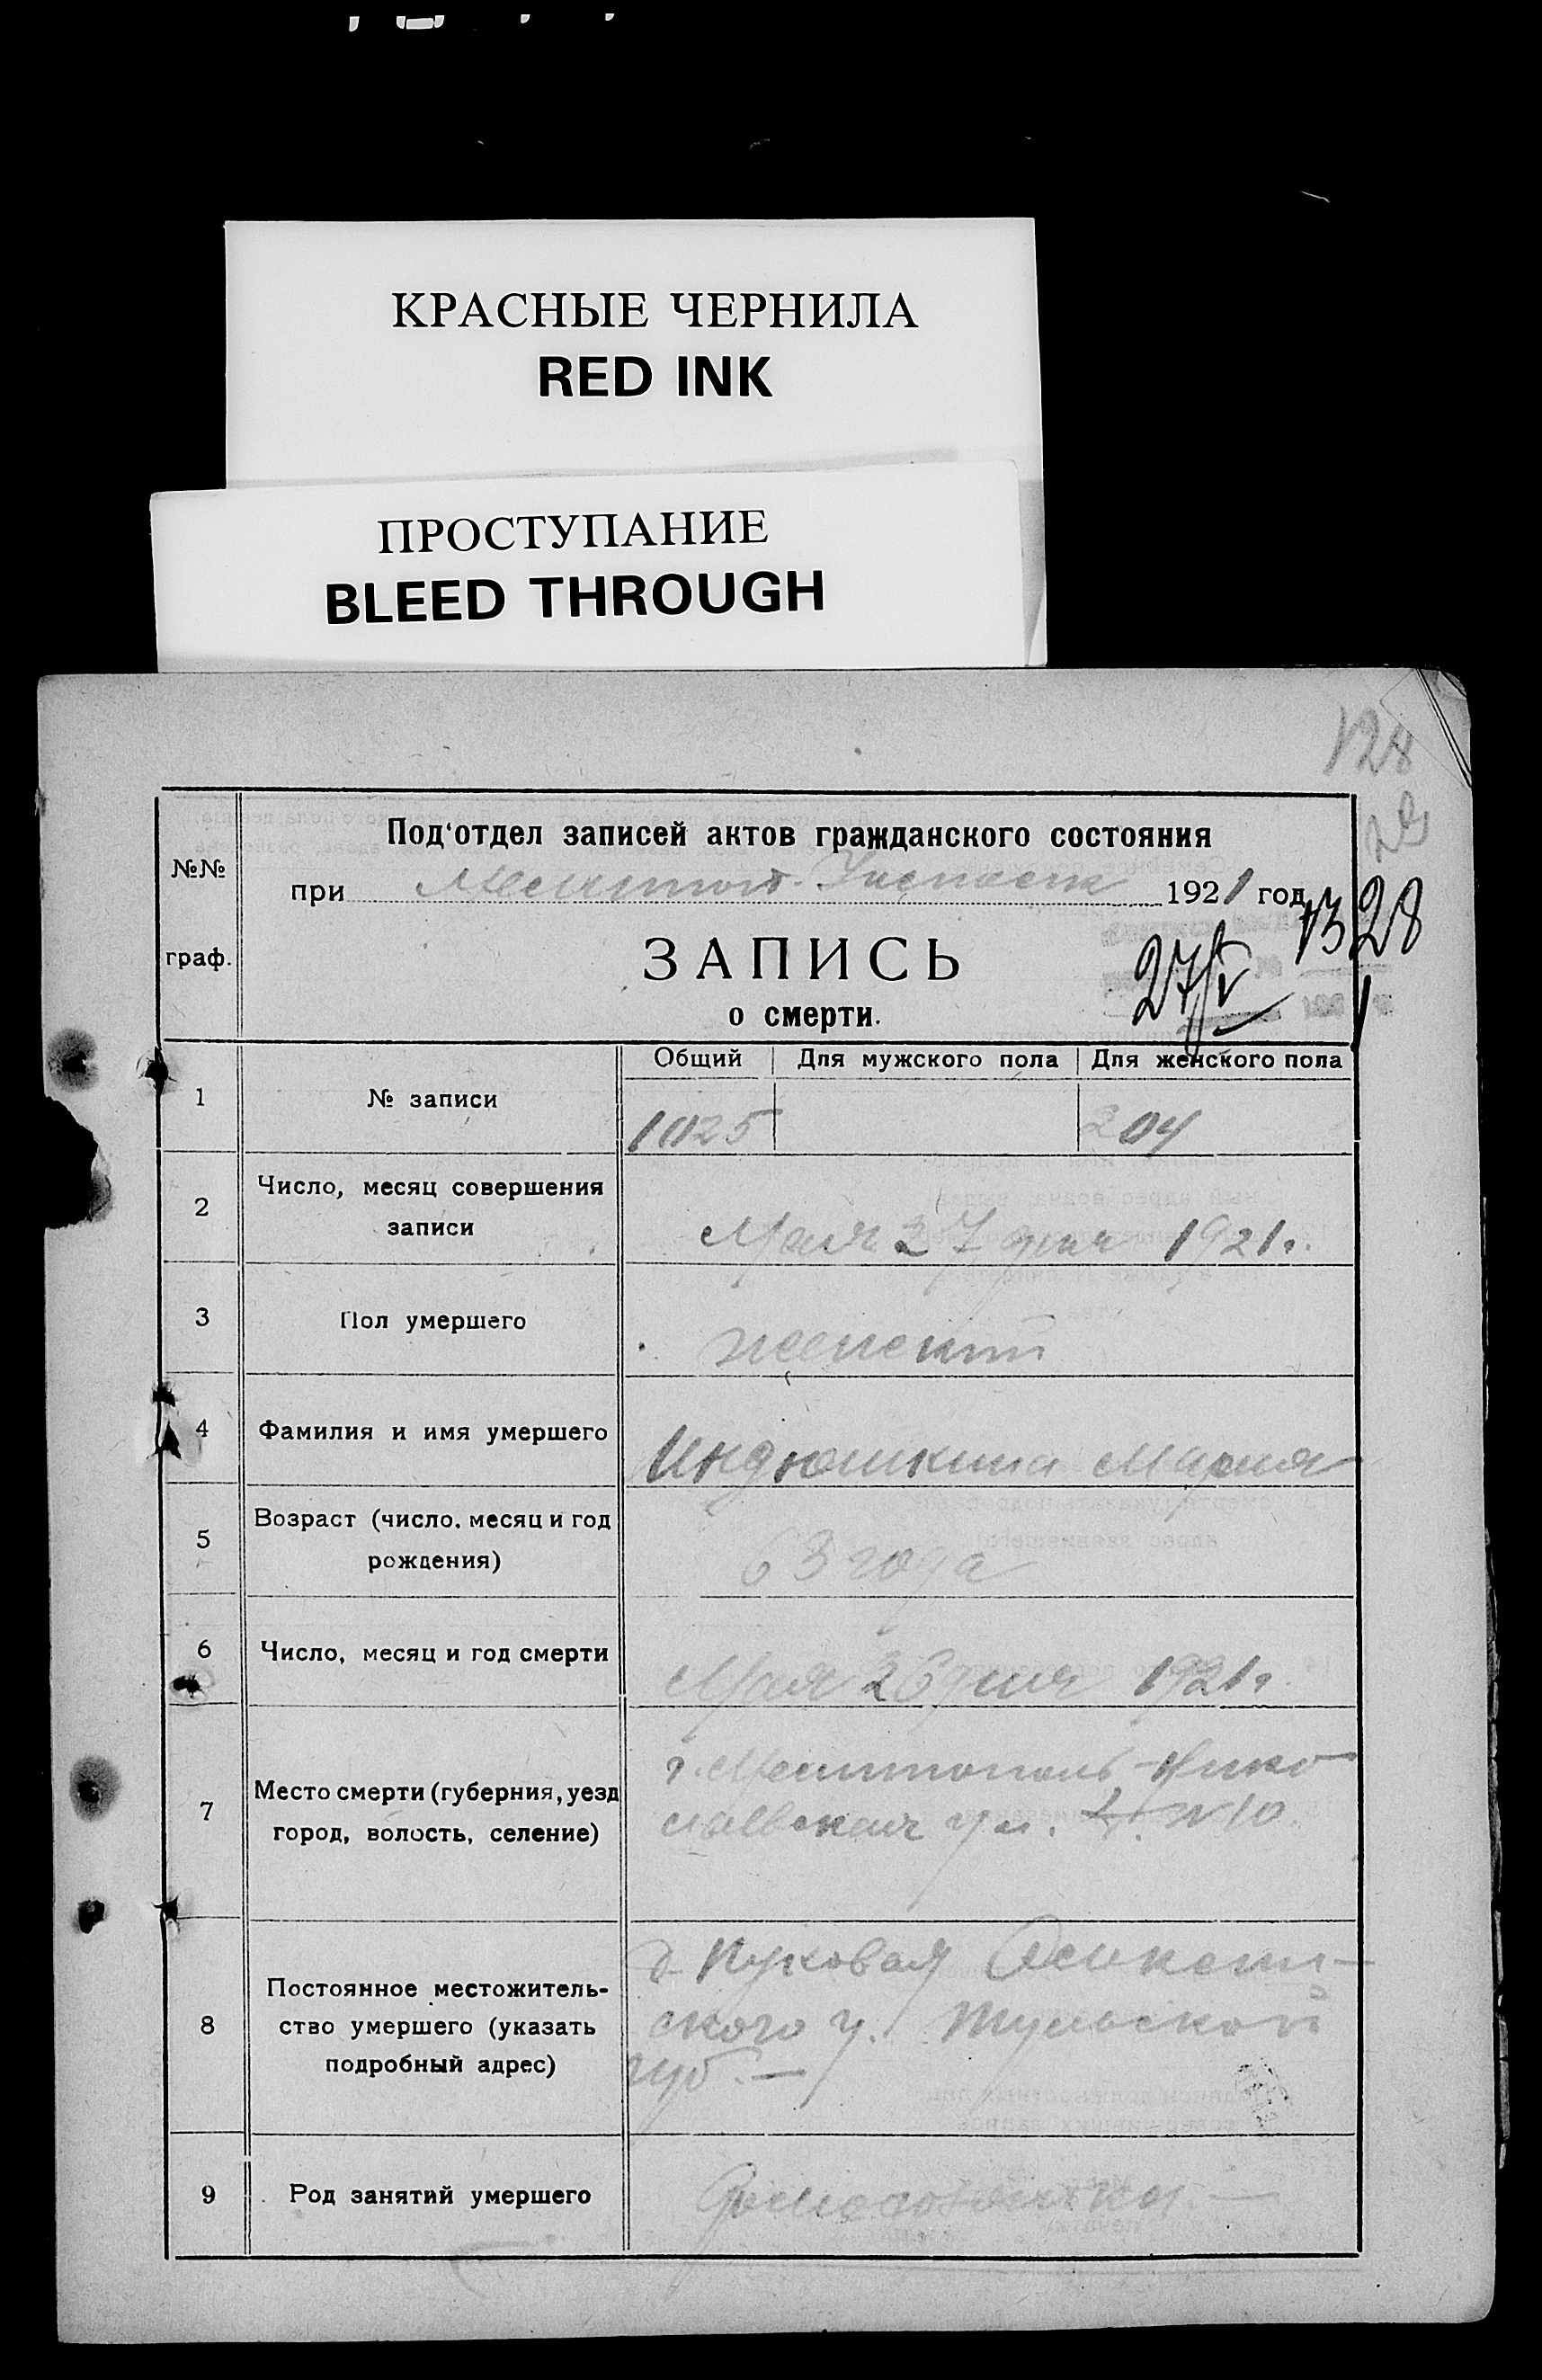 КРАСНЫЕ ЧЕРНИЛА
RED INK
ПРОСТУПАНИЕ
BLEED THROUGH
128
Под‘отдел записей актов гражданского состояния
№№ граф.
при Мелитоп. 1921 год
1328
ЗАПИСЬ
27/V
о смерти.
Общий Для мужского пола Для женского пола
1 № записи 1025 204
2 Число, месяц совершения
записи
Мая 27 дня 1921г.
3 Пол умершего женский
4 Фамилия и имя умершего Индюшкина Мария
5 Возраст (число, месяц и год
рождения)
63 года
6 Число, месяц и год смерти Мая 26 дня 1921г.
7 Место смерти (губерния, уезд
город, волость, селение)
г. Мелитополь Нико
лаевская ул. № 10.
8 Постоянное местожитель-
ство умершего (указать
подробный адрес)
д.
ского у. Тульской
губ. —
9 Род занятий умершего Домохозяйка —